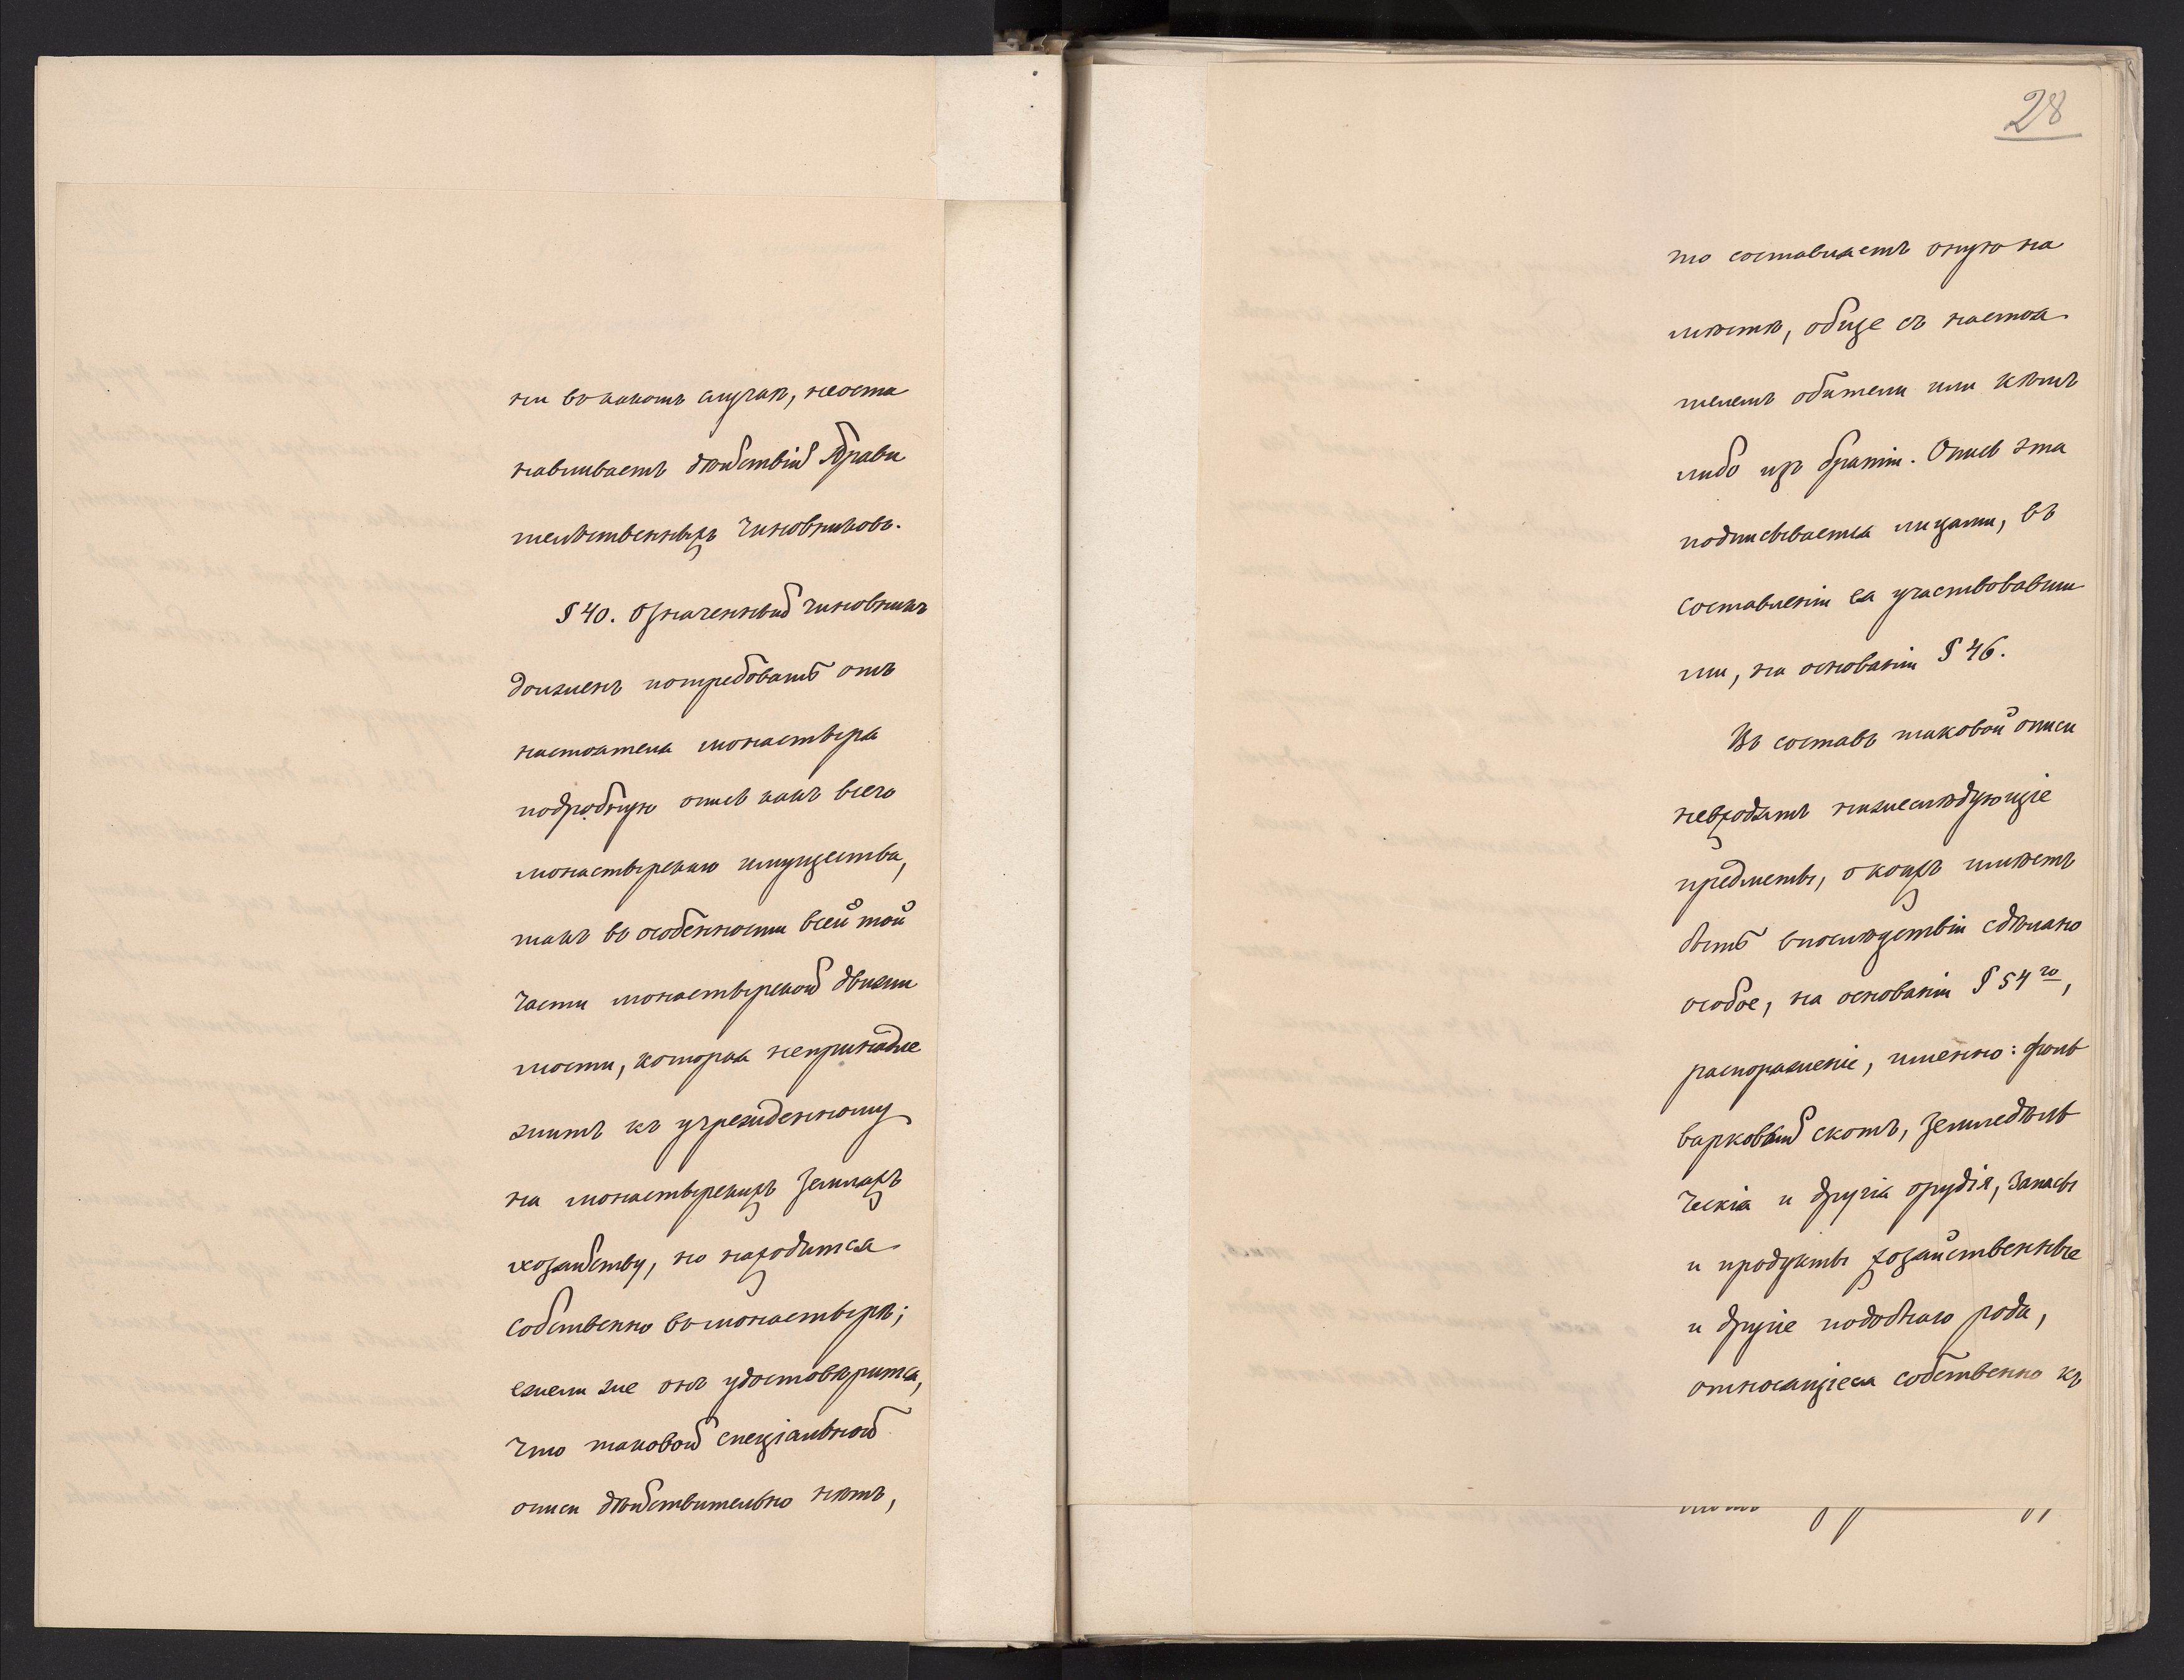 ни въ какомъ случаѣ, неоста
навливаетъ дѣйствій Прави
тельственныхъ Чиновниковъ.
§ 40. Означенный чиновникъ
долженъ потребовать отъ
настоятеля монастыря
подробную опись какъ всего
монастырскаго имущества,
такъ въ особенности всей той
части монастырской движи
мости, которая непринадле
житъ къ учрежденному
на монастырскихъ земляхъ
хозяйству, но находится
собственно въ монастырѣ;
ежели же онъ удостовѣрится,
что таковой спеціальной
описи дѣйствительно нѣтъ,
28
то составляетъ оную на
мѣстѣ, обще съ настоя
телемъ обители или кѣмъ
либо изъ братіи. Опись эта
подписывается лицами, въ
составленіи ея участвовавши
ми, на основаніи § 46.
Въ составъ таковой описи
невходятъ нижеслѣдующіе
предметы, о коихъ имѣетъ
быть впослѣдствіи сдѣлано
особое, на основаніи § 54го,
распоряженіе, именно: фоль
варковый скотъ, земледѣль
ческія и другія орудія, запасы
и продукты хозяйственные
и другіе подобнаго рода,
относящіеся собственно къ